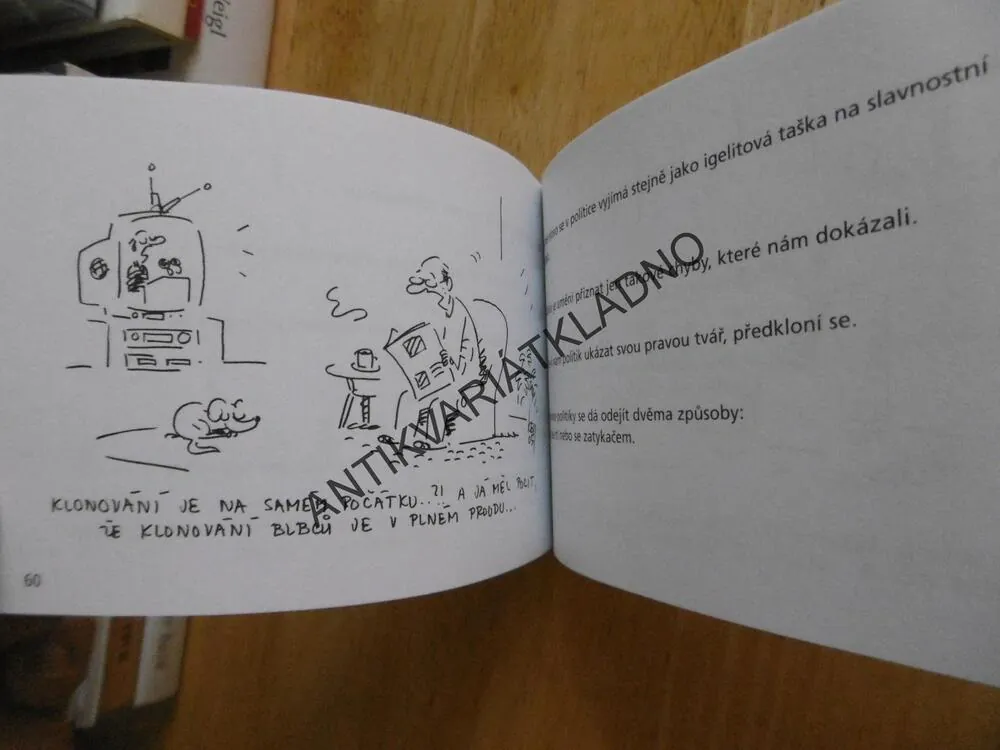 eigl
KLONOVÁNÍ JE NA SAMÉM POČÁTKU...?! A JÁ MĚL POCIT,
ŽE KLONOVÁNÍ BLBCŮ JE V PLNÉM PROUDU...
60
se v politice vyjímá stejně jako igelitová taška na slavnostní
je umění přiznat jen takové chyby, které nám dokázali.
politik ukázat svou pravou tvář, předkloní se.
politiky se dá odejít dvěma způsoby:
nebo se zatykačem.
ANTIKVARIÁTKLADNO